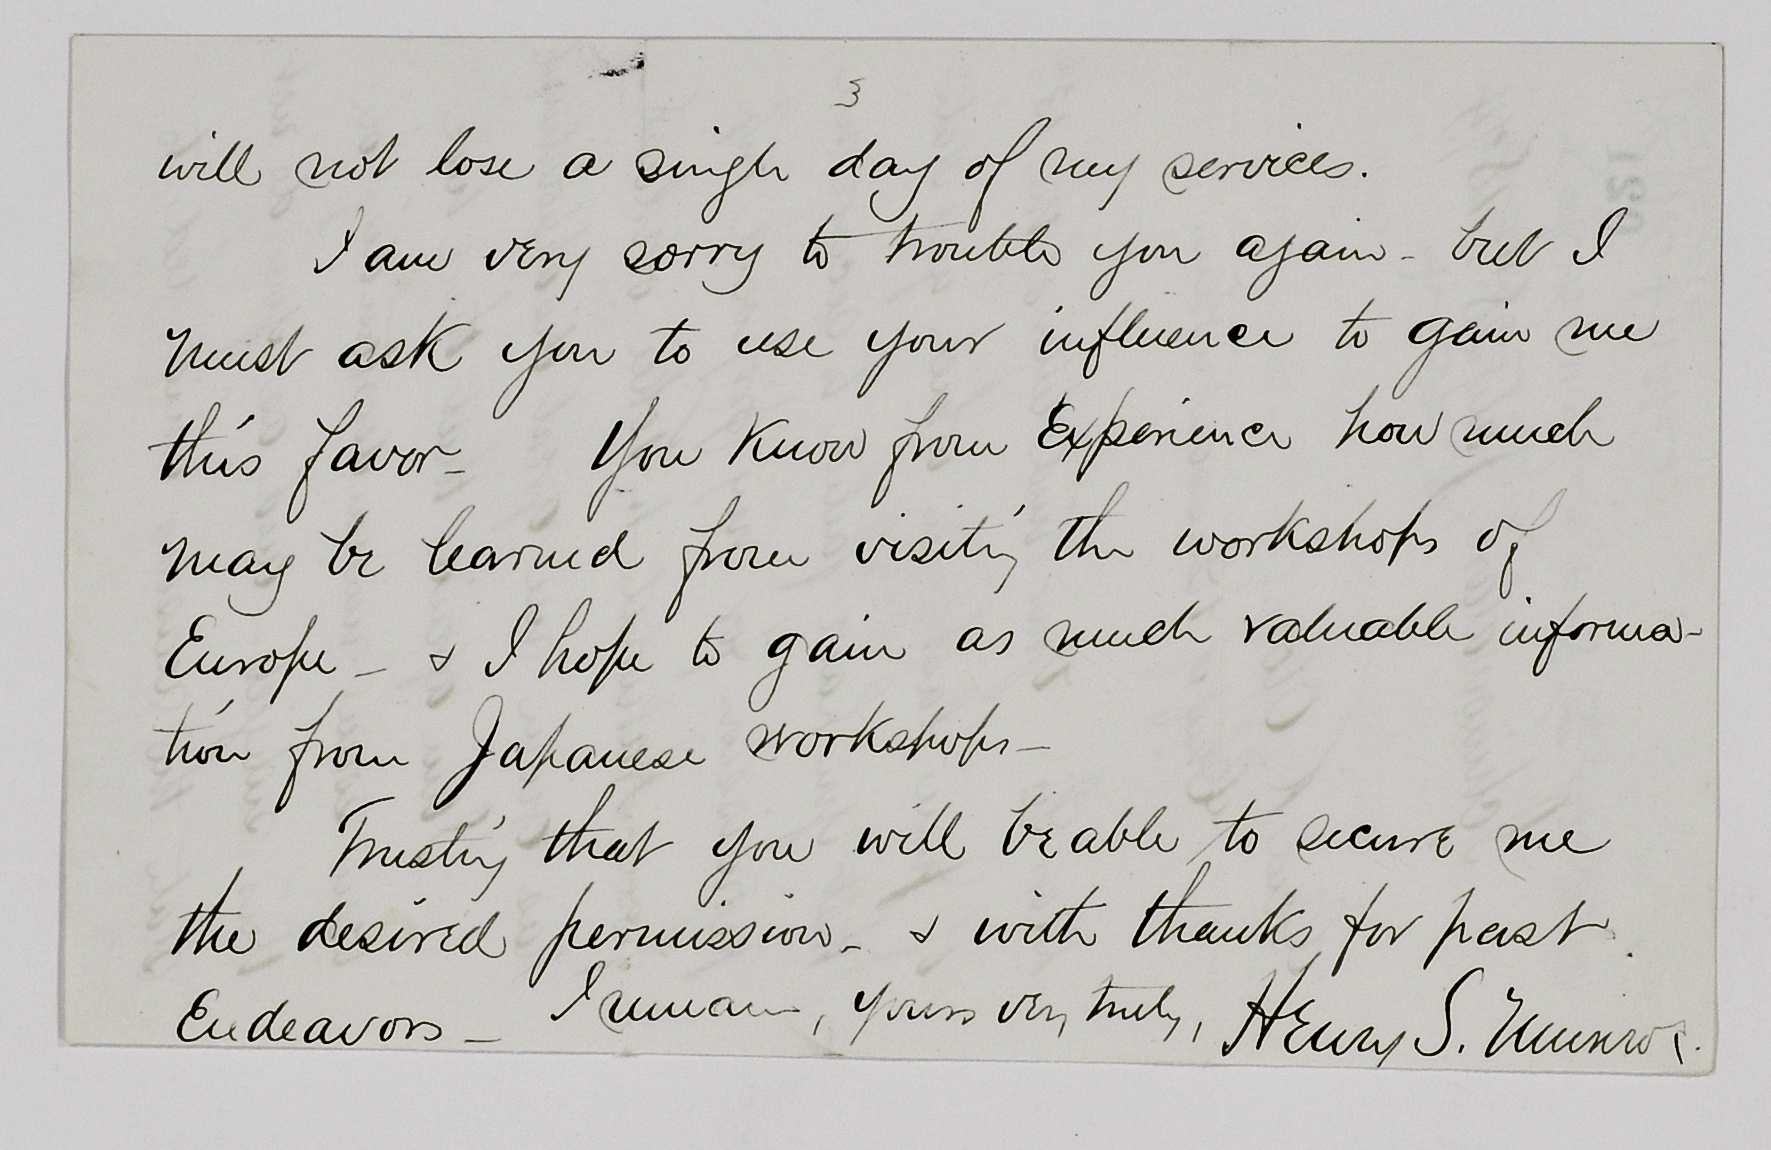 3
will not lose a single day of my services.
I am very sorry to trouble you again - but I
must ask you to use your influence to gain me
this favor - You know from Experience how much
may be learned from visiting the workshops of
Europe - & I hope to gain as much valuable informa-
tion from Japanese workshops -
Trusting that you will be able to secure me
the desired permission - & with thanks for past
Endeavors - I remain, yours very truly, Henry S. Munroe.